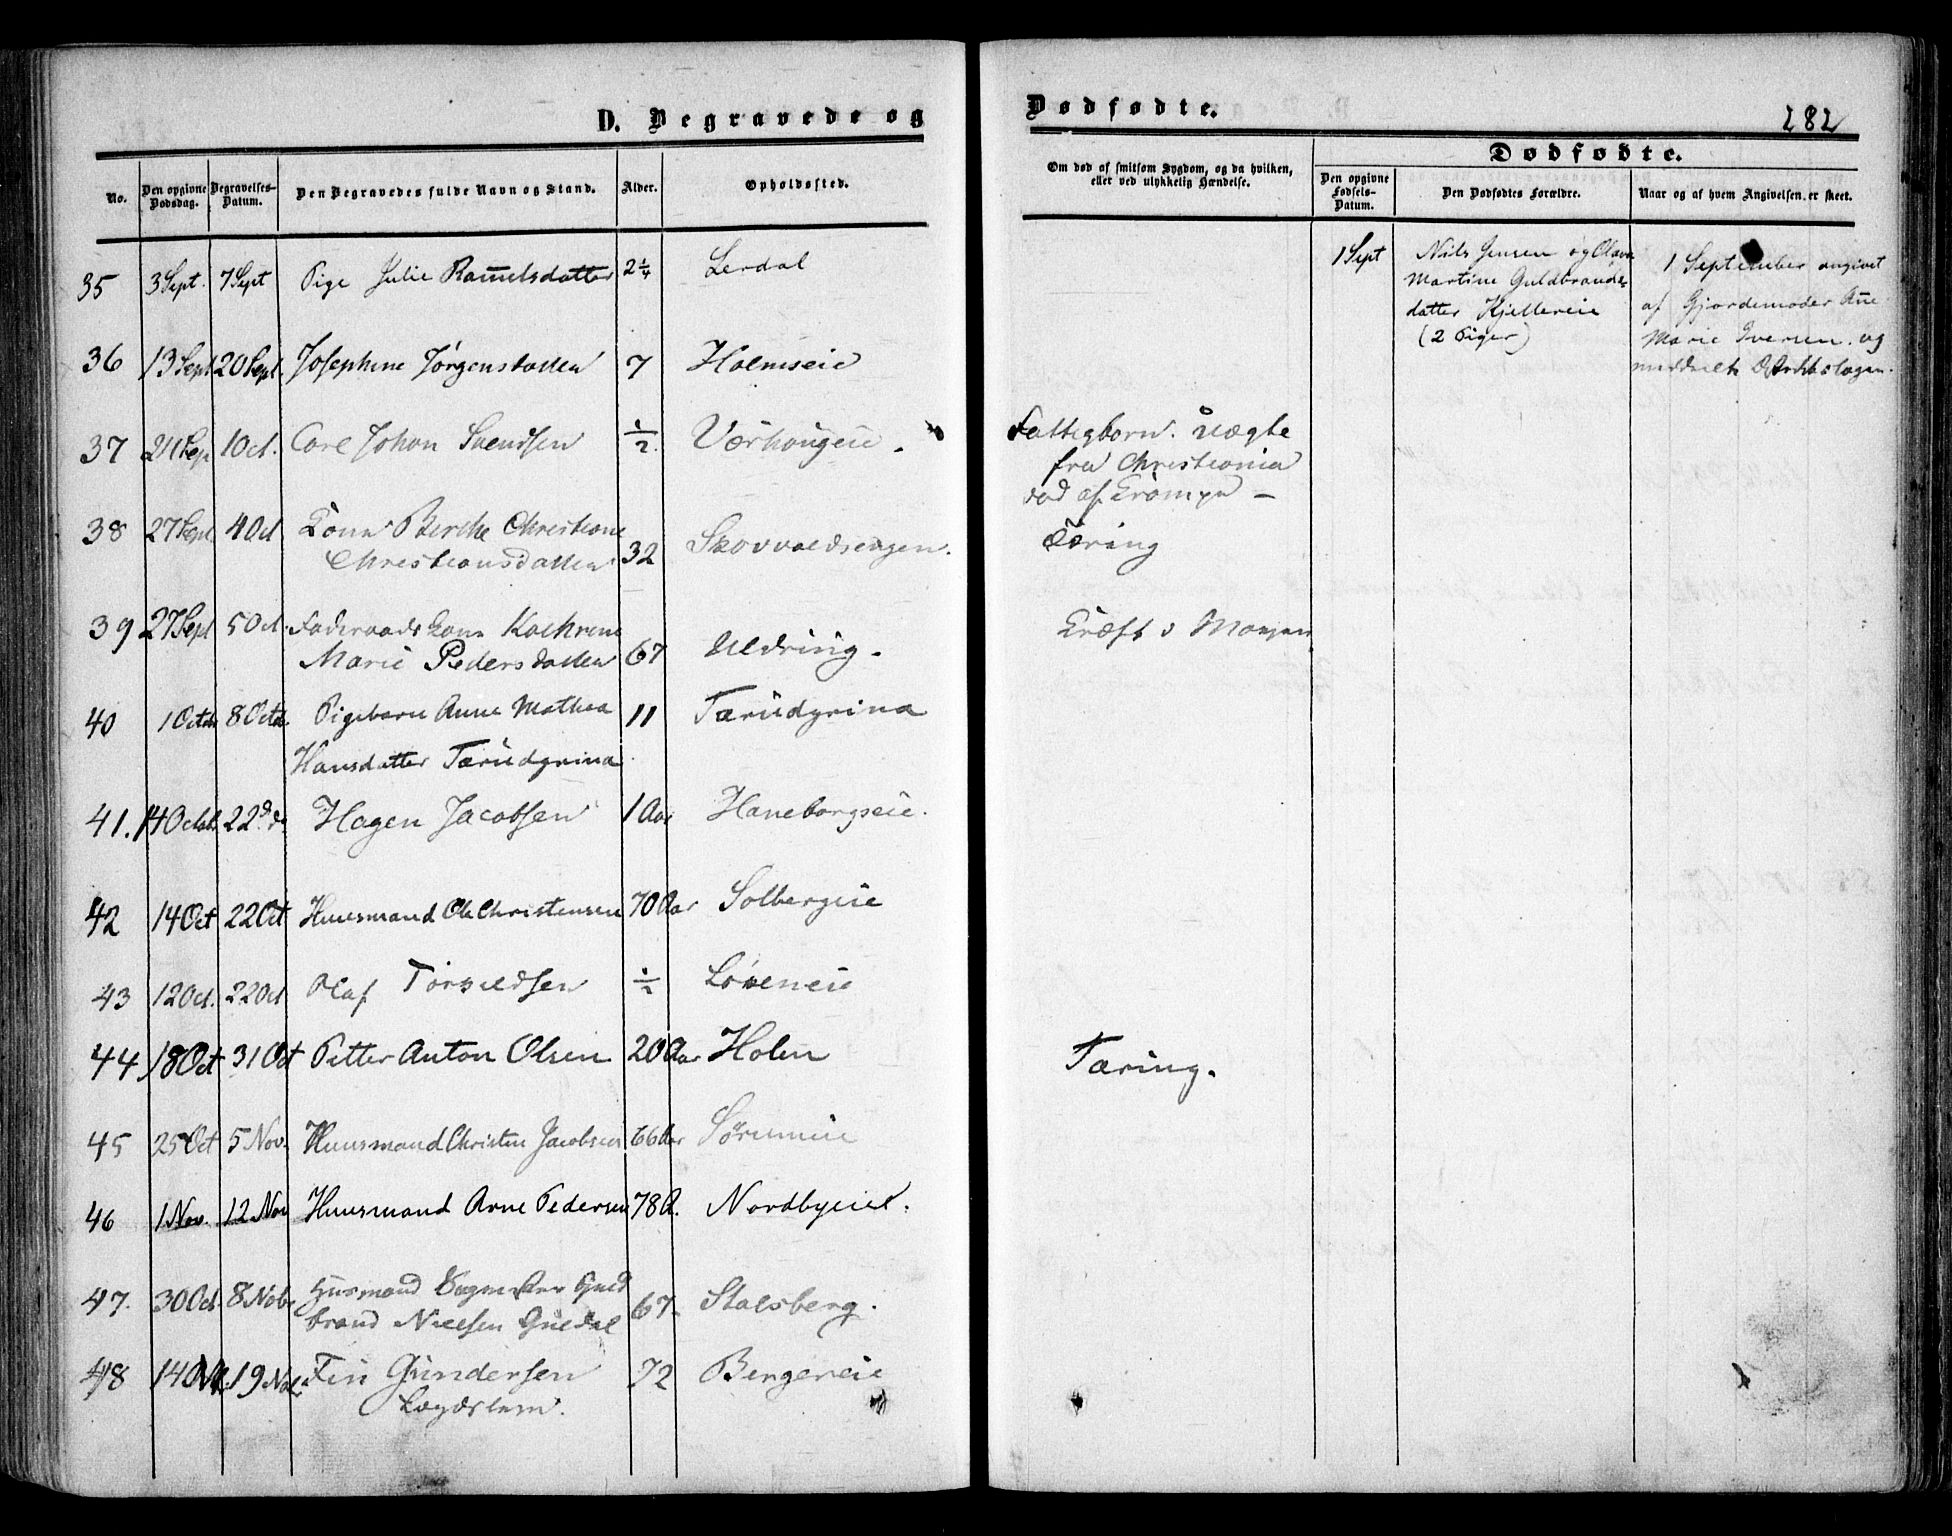 D. Begravede og
Dødfødte.
282
No.
Den opgivne Dødsdag.
Begravelses-Datum.
Den Begravedes fulde Navn og Stand.
Alder.
Opholdssted.
Om død af smitsom Sygdom, og da hvilken, eller ved ulykkelig Hændelse.
Dødfødte.
Den opgivne Fødsels-Datum.
Den Dødfødtes Forældre.
Naar og af hvem Angivelsen er skeet.
35 3 Sept. 7 Sept Pige Julie Ramelsdatter 2 1/4 Lerdal
1 Sept Nils Jensen og Olava
Martine Guldbrands
datter Kjellereie
(2 Piger)
1 September angivet
af Gjordemoder Ane
Marie Iversen og
36 13 Sept 20 Sept. Josephine Jørgensdatter 7 Holmseie
37 21 Sep 1 Oct. Carl Johan Svendsen 1/2 Værhougeie.
Fattigbarn. uægte
fra Christiania
død af Krampe –
38 27 Sept 4 Oct Kone Berthe Christiane
Christiansdatter 32 Skovvoldsengen.
Tæring
39 27 Sept 5 Oct. Føderaadskone Kathrine
Marie Pedersdatter 67 Uldring.
Kræft i Maven
40 1 Octb 8 Octb. Pigebarn Anne Mathea 11 Tærudgrina
Hansdatter Tærudgrina
41. 14 Octob. 22 d. ds Hagen Jacobsen 1 Aar Haneborgseie.
42 14 Oct 22 Oct Huusmand Ole Christensen 70 Aar Solbergeie
43 12 Oct. 22 Oct Olaf 1/2 Løkeneie
44 18 Oct 31 Oct Petter Anton Olsen 20 Aar Holen
Tæring.
45 25 Oct 5 Nov. Huusmand Christen Jacobsen 66 Aar Sørumeie
46 1 Nov. 12 Nov Huusmand Arne Pedersen 78 A. Nordbyeiet.
47. 30 Oct. 8 Nobr Husmand Guld
brand Nielsen 67. Stalsberg.
48 14 19 Nob. Fin Gundersen 72 Bergereie
Lægdslem.